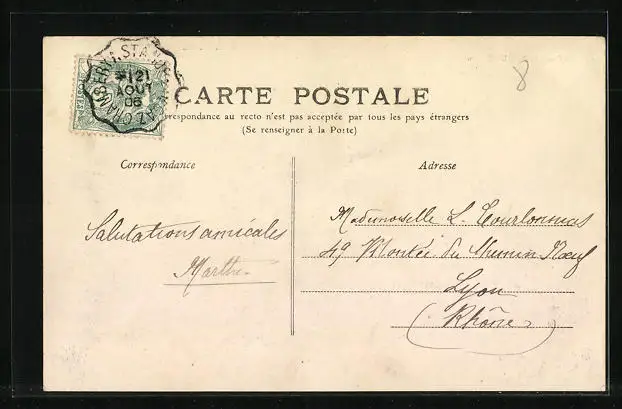 8
CHAMBERY A ST
21
AOUT
06
POSTES
CARTE POSTALE
respondance au recto n'est pas acceptée par tous les pays étrangers
(Se renseigner à la Poste)
Correspondance
Adresse
Salutations amicales
Marthe
Mademoiselle L.
49 Montée du Chemin Neuf
Lyon
(Rhône)